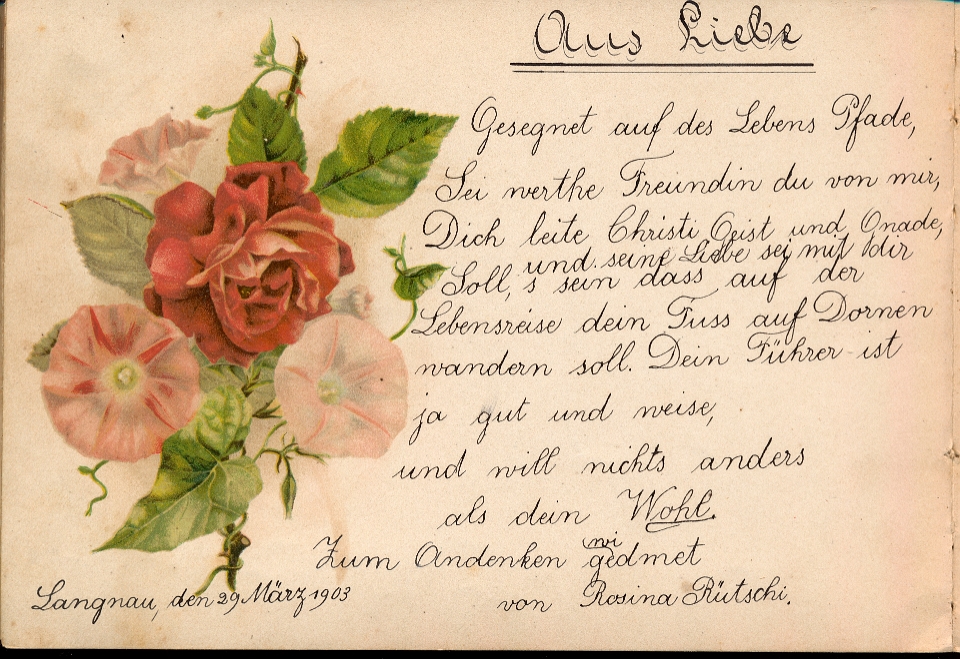 Aus Liebe
Gesegnet auf des Lebens Pfade,
Sei werthe Freundin du von mir,
Dich leite Christi Geist und Gnade,
und seine Liebe sei mit dir
Soll's sein dass auf der
Lebensreise dein Fuss auf Dornen
wandern soll. Dein Führer ist
ja gut und weise,
und will nichts anders
als dein Wohl.
wi
Zum Andenken gedmet
Langnau, den 29 März 1903
von Rosina Rütschi.